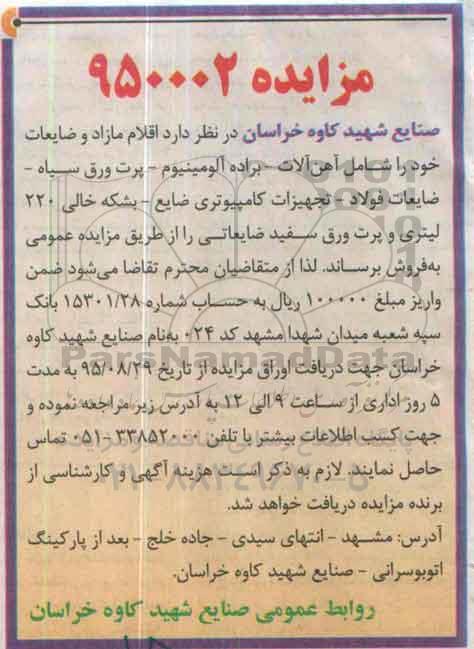 مزایده ۹۵۰۰۰۲
صنایع شهید کاوه خراسان در نظر دارد اقلام مازاد و ضایعات
خود را شامل آهن‌آلات - براده آلومینیوم - پرت ورق سیاه -
ضایعات فولاد - تجهیزات کامپیوتری ضایع - بشکه خالی ۲۲۰
لیتری و پرت ورق سفید ضایعاتی را از طریق مزایده عمومی
به‌فروش برساند. لذا از متقاضیان محترم تقاضا می‌شود ضمن
واریز مبلغ ۱۰۰۰۰۰ ریال به حساب شماره ۱۵۳۰۱/۲۸ بانک
سپه شعبه میدان شهدا مشهد کد ۰۲۴ به‌نام صنایع شهید کاوه
خراسان جهت دریافت اوراق مزایده از تاریخ ۹۵/۰۸/۲۹ به مدت
۵ روز اداری از ساعت ۹ الی ۱۲ به آدرس زیر مراجعه نموده و
جهت کسب اطلاعات بیشتر با تلفن ۳۳۸۵۲۰۰۰-۰۵۱ تماس
حاصل نمایند. لازم به ذکر است هزینه آگهی و کارشناسی از
برنده مزایده دریافت خواهد شد.
آدرس: مشهد - انتهای سیدی - جاده خلج - بعد از پارکینگ
اتوبوسرانی - صنایع شهید کاوه خراسان.
روابط عمومی صنایع شهید کاوه خراسان
ParsNamadData